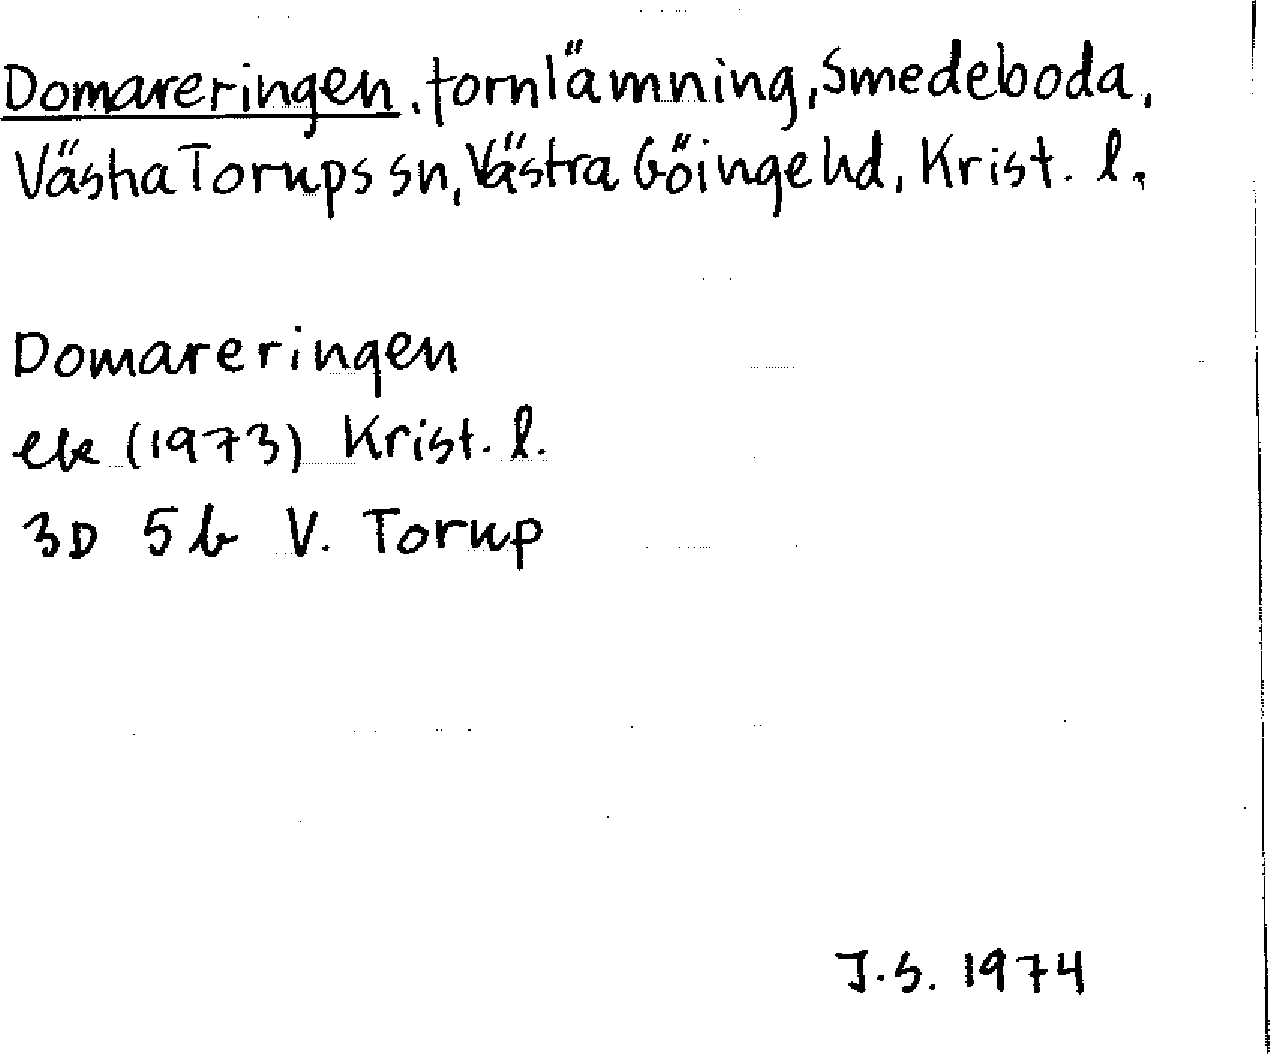 Domareringen, fornlämning, Smedeboda,
Västra Torups sn, Västra Göinge hd, Krist. l.
Domareringen
ek (1973) Krist. l.
3D 5b V. Torup
J.S. 1974